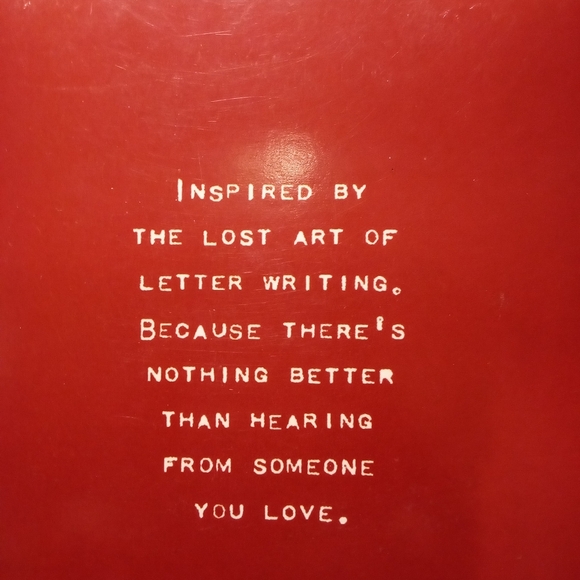 Inspired by
the lost art of
letter writing.
Because there's
nothing better
than hearing
from someone
you love.